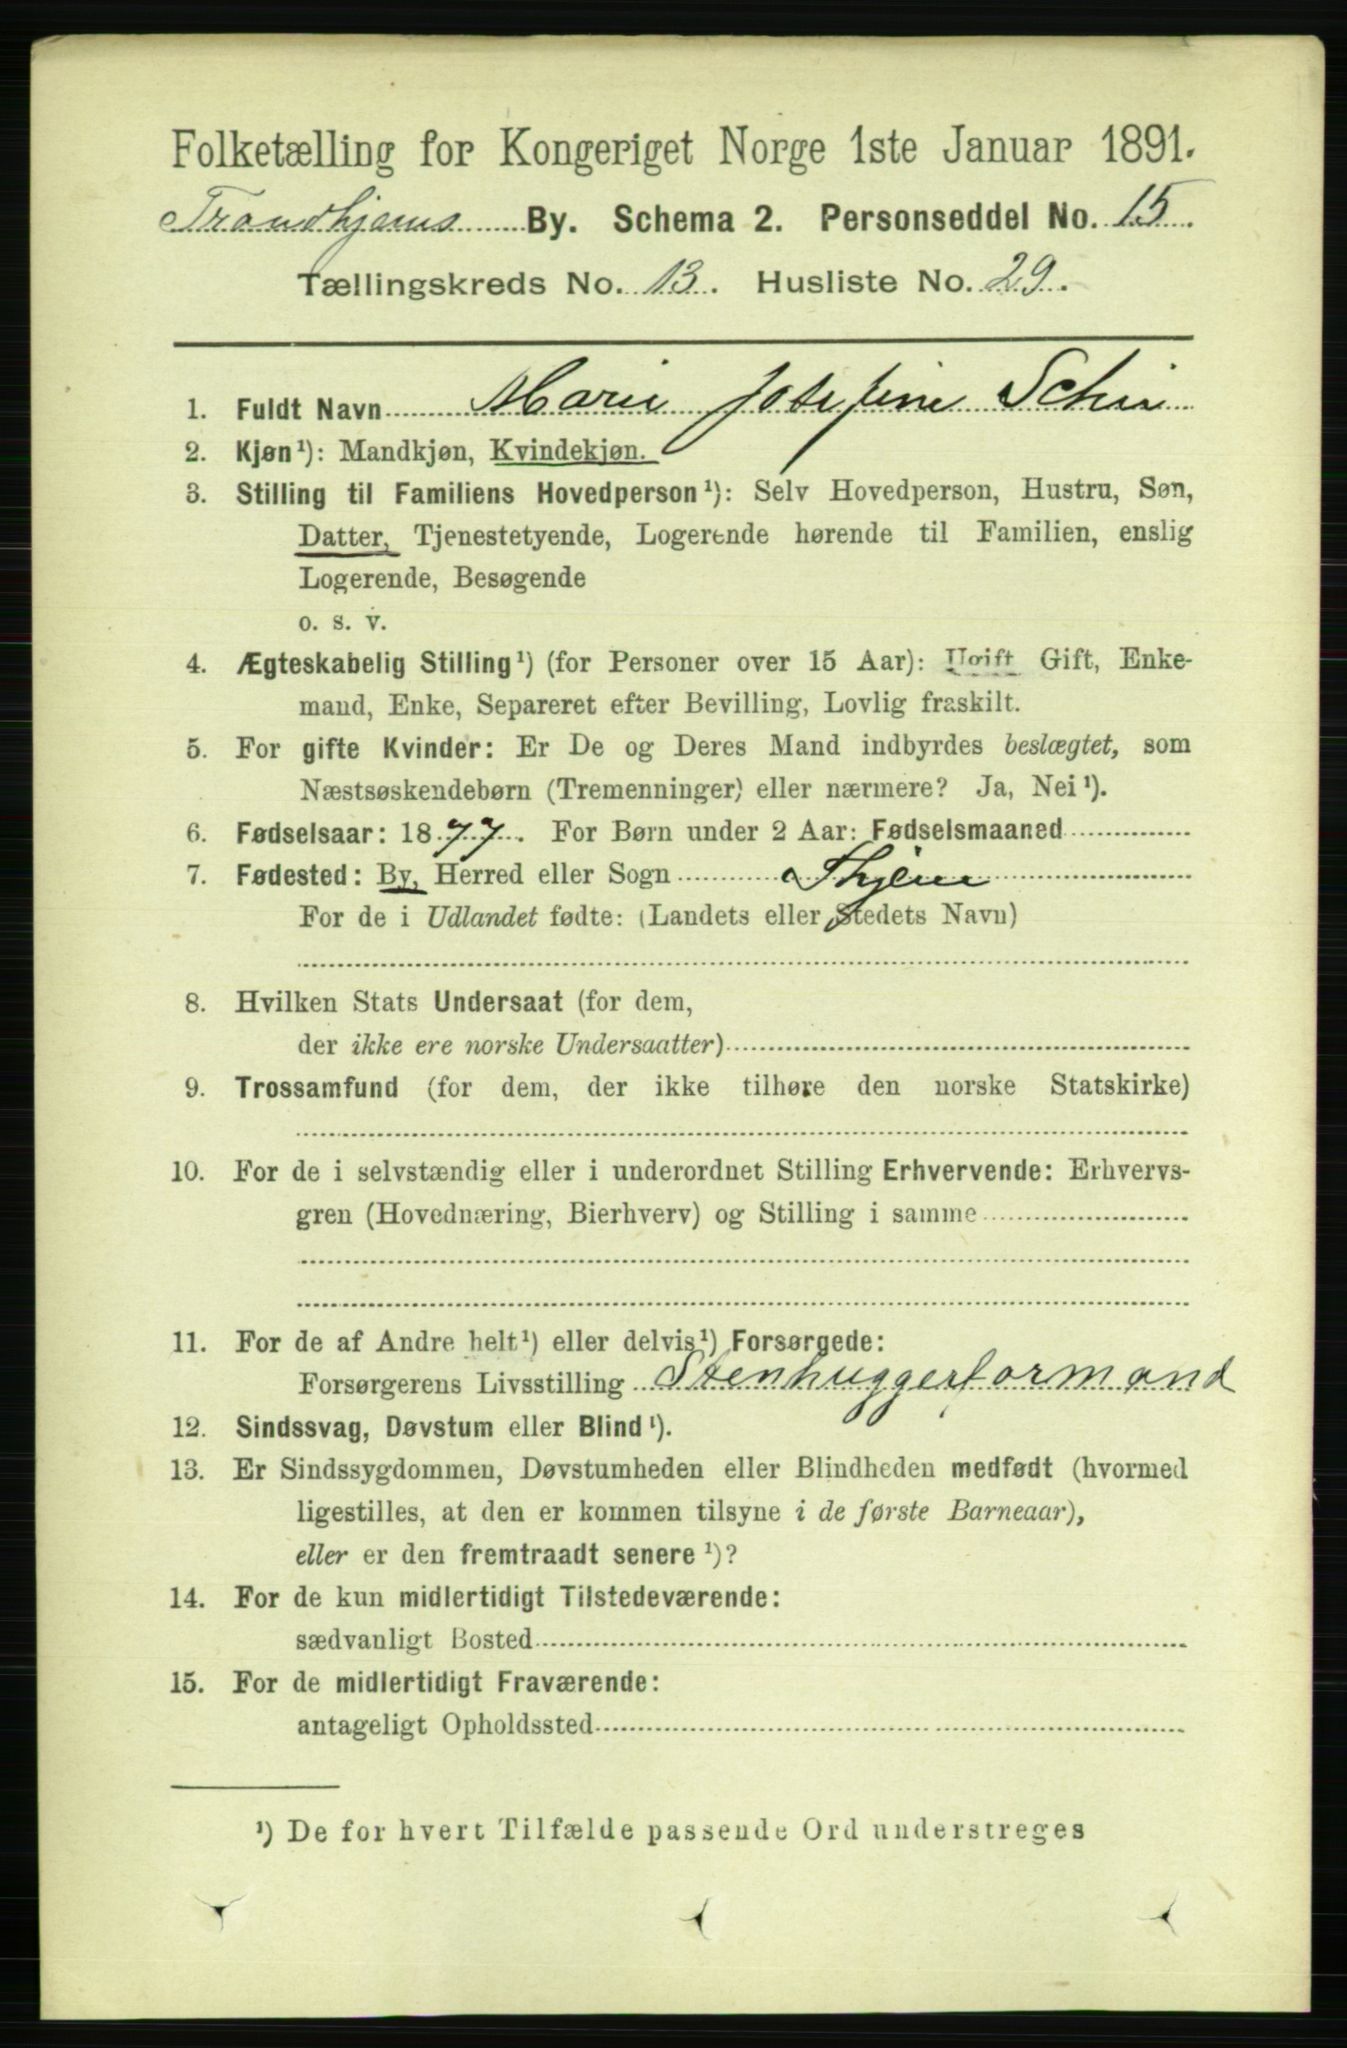 Folketælling for Kongeriget Norge 1ste Januar 1891.
Trondhjems By. Schema 2. Personseddel No. 15.
Tællingskreds No. 13. Husliste No. 29.
1. Fuldt Navn Marie Josefine
2. Kjøn¹): Mandkjøn, Kvindekjøn.
3. Stilling til Familiens Hovedperson¹): Selv Hovedperson, Hustru, Søn,
Datter, Tjenestetyende, Logerende hørende til Familien, enslig
Logerende, Besøgende
o. s. v.
4. Ægteskabelig Stilling¹) (for Personer over 15 Aar): Ugift Gift, Enke-
mand, Enke, Separeret efter Bevilling, Lovlig fraskilt.
5. For gifte Kvinder: Er De og Deres Mand indbyrdes beslægtet, som
Næstsøskendebørn (Tremenninger) eller nærmere? Ja, Nei¹).
6. Fødselsaar: 1877. For Børn under 2 Aar: Fødselsmaaned
7. Fødested: By, Herred eller Sogn Thjem
For de i Udlandet fødte: (Landets eller Stedets Navn)
8. Hvilken Stats Undersaat (for dem,
der ikke ere norske Undersaatter)
9. Trossamfund (for dem, der ikke tilhøre den norske Statskirke)
10. For de i selvstændig eller i underordnet Stilling Erhvervende: Erhvervs-
gren (Hovednæring, Bierhverv) og Stilling i samme
11. For de af Andre helt¹) eller delvis¹) Forsørgede:
Forsørgerens Livsstilling Stenhuggerformand
12. Sindssvag, Døvstum eller Blind¹).
13. Er Sindssygdommen, Døvstumheden eller Blindheden medfødt (hvormed
ligestilles, at den er kommen tilsyne i de første Barneaar),
eller er den fremtraadt senere¹)?
14. For de kun midlertidigt Tilstedeværende:
sædvanligt Bosted
15. For de midlertidigt Fraværende:
antageligt Opholdssted
¹) De for hvert Tilfælde passende Ord understreges